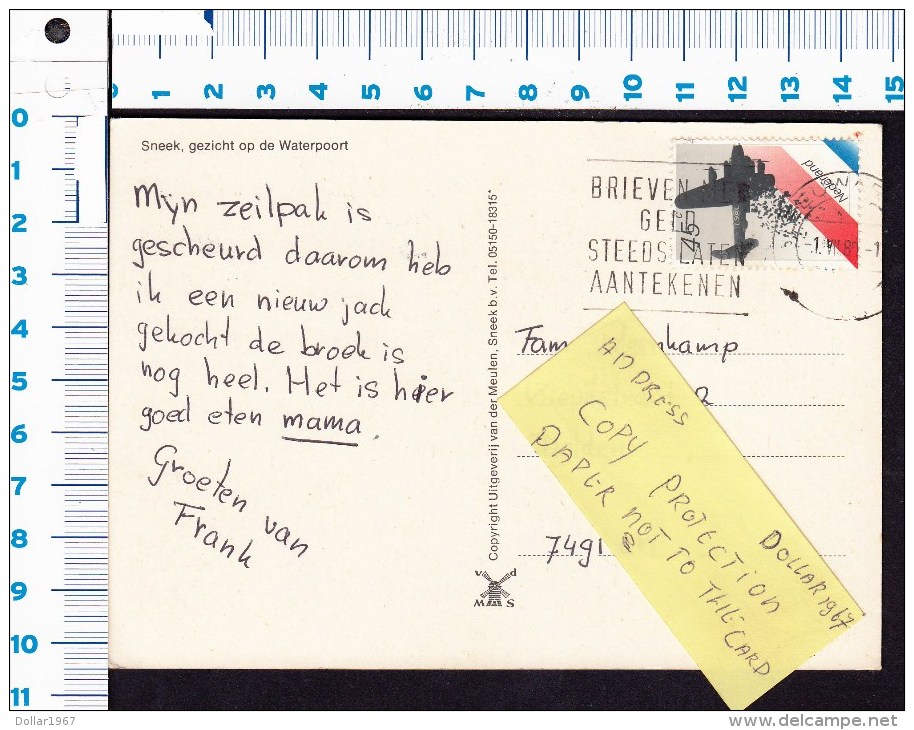 0 1 2 3 4 5 6 7 8 9 10 11 12 13 14 15
0
1
2
3
4
5
6
7
8
9
10
11
Sneek, gezicht op de Waterpoort
Mijn zeilpak is
gescheurd daarom heb
ik een nieuw jack
gekocht de broek is
nog heel. Het is hier
goed eten mama.
Groeten van
Frank
Copyright Uitgeverij van der Meulen, Sneek b.v. Tel. 05150-18315*
v d
M S
BRIEVEN MET
GELD
STEEDS LATEN
AANTEKENEN
Nederland
45
Fam kamp
7491
ADDRESS
COPY PROTECTION
PAPER NOT TO THE CARD
DOLLAR1967
Dollar1967
www.delcampe.net